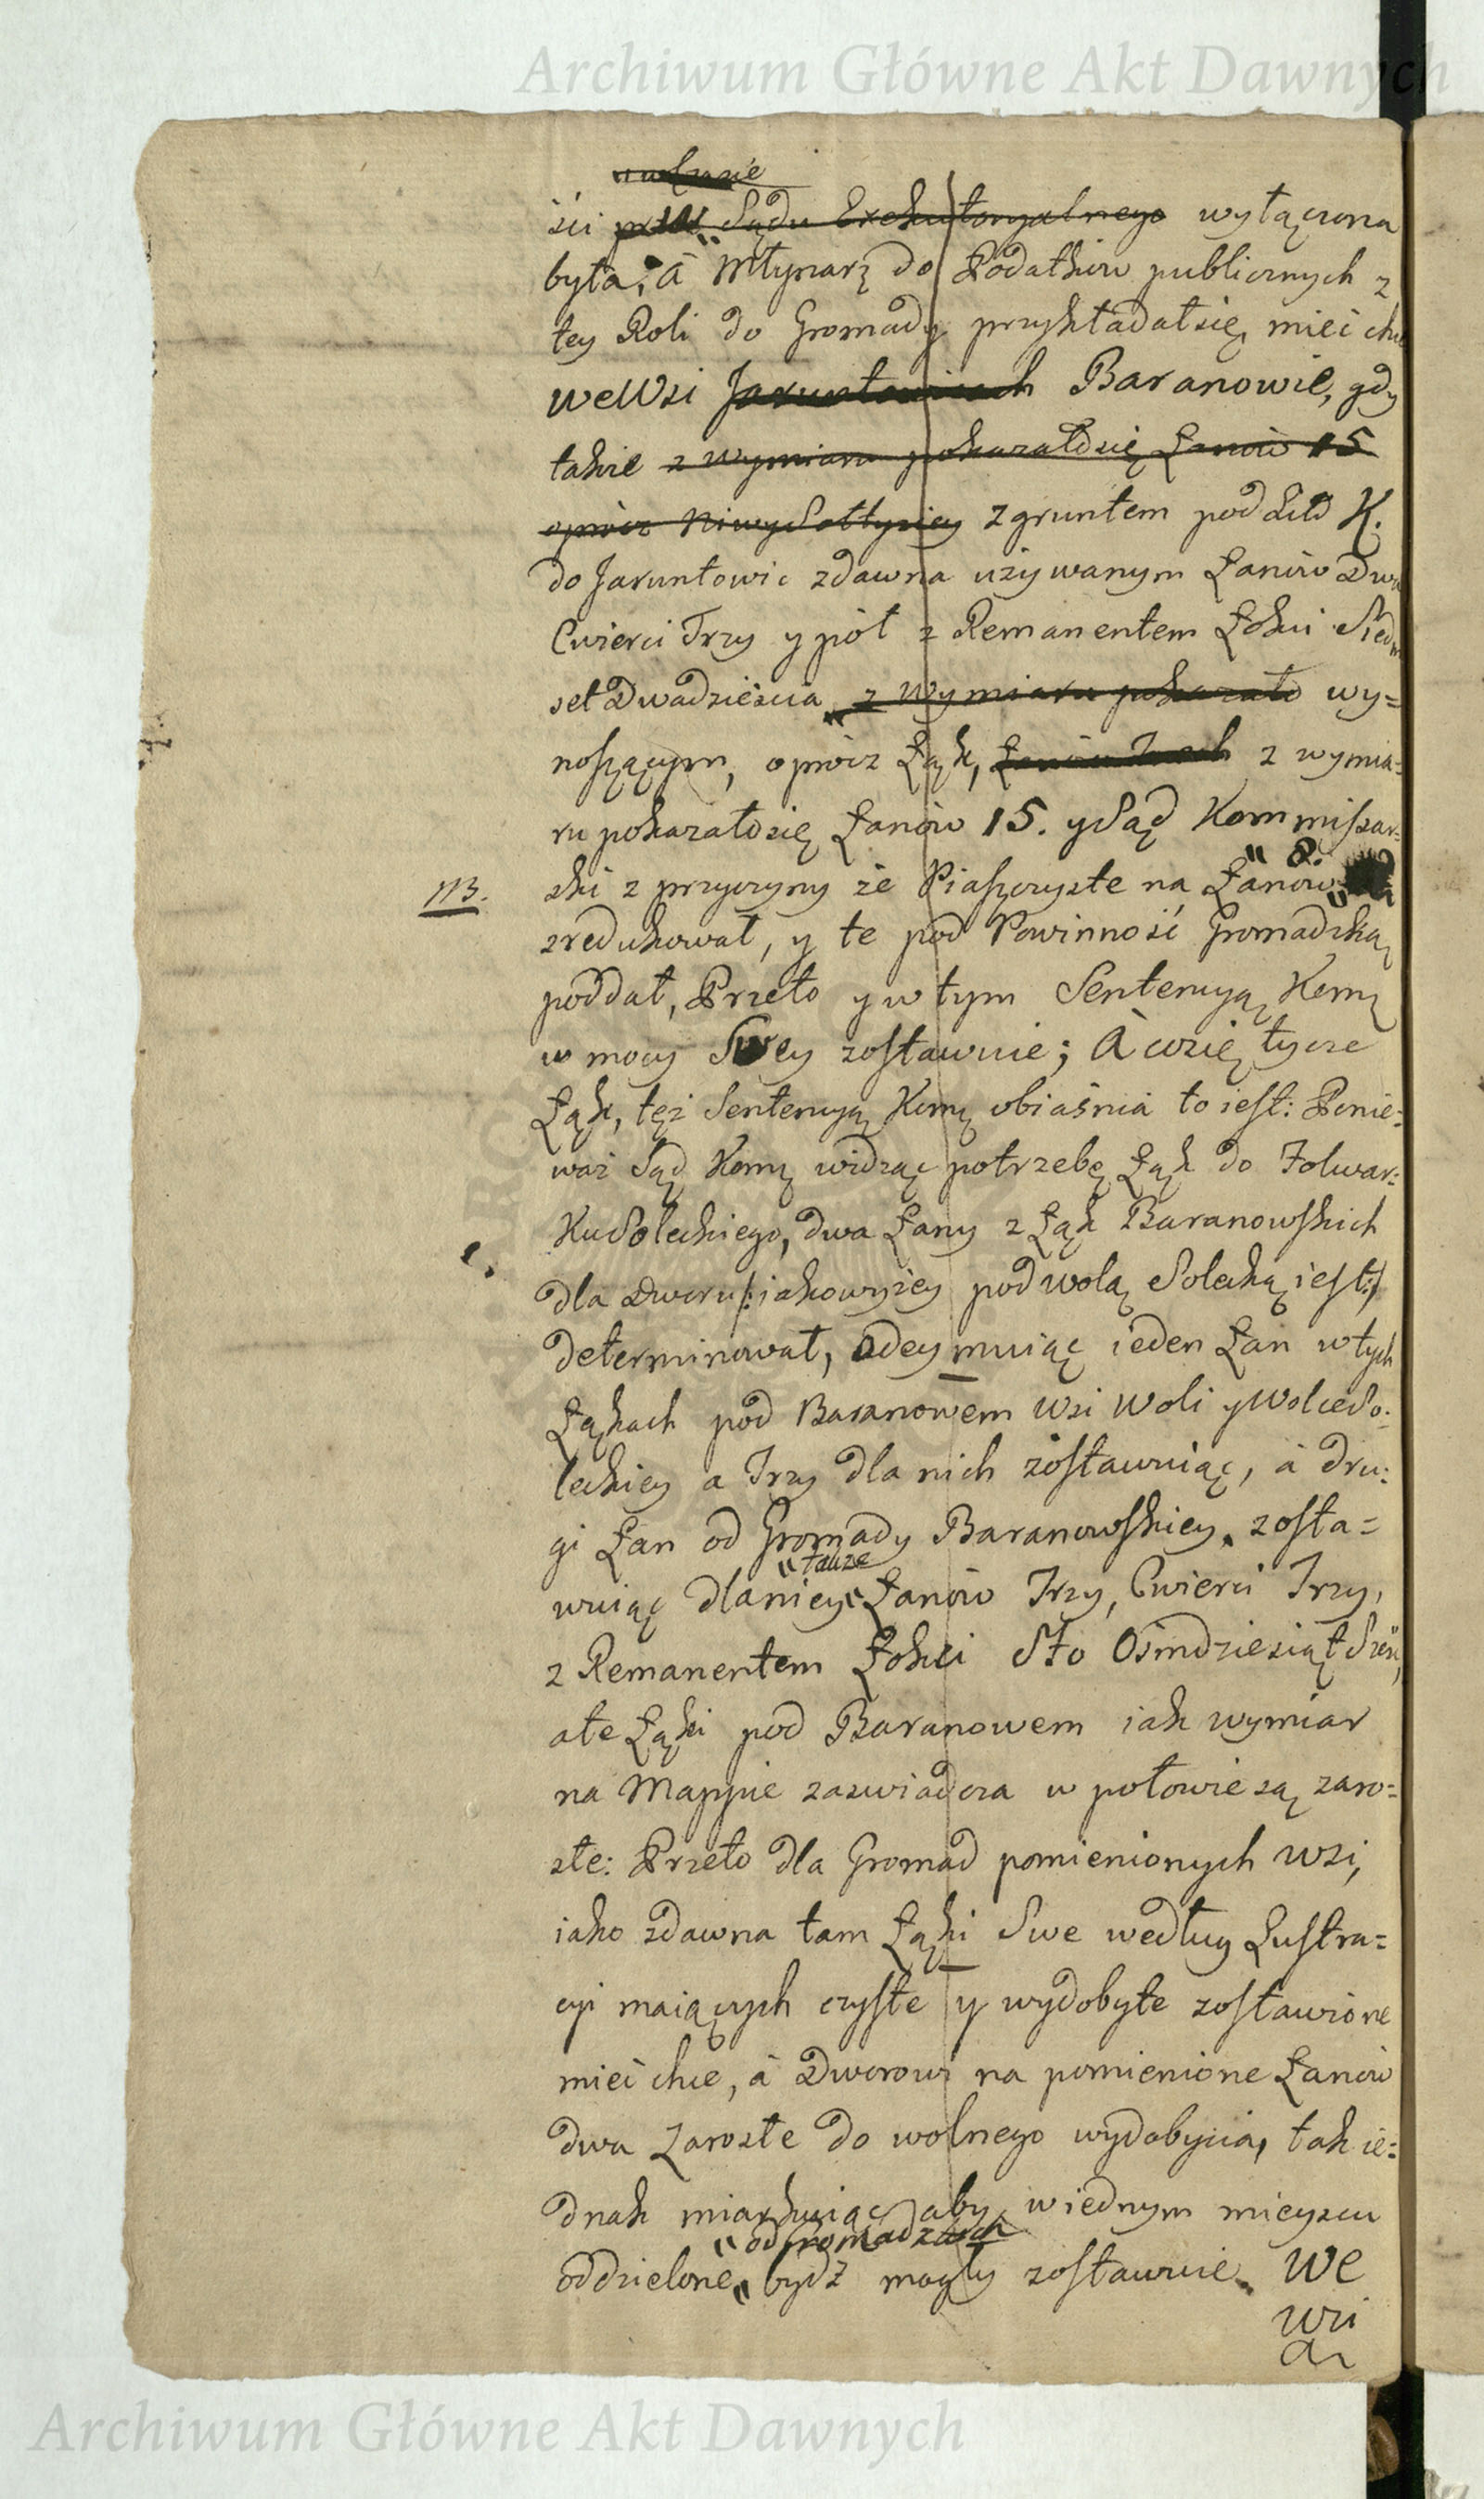 Archiwum Główne Akt Dawnych
ści przez Sądu Exekutoryalnego wyłączona
była; à Młynarz do Podatkow publicznych z
tey Roli do Gromady przykładałsię mieć chce
weWsi Jaruntowicach Baranowie, gdy
takie z wymiaru pokazałosię Łanów 15
oprócz Niwy Sołtysiey z gruntem pod Lit: K.
do Jaruntowic zdawna używanym Łanów Dwa
Cwierci Trzy y pół z Remanentem Łokci Siedm
set Dwadzieścia z wymiaru pokazało wy=
noszącym, oprócz Łąk, z wymia=
ru pokazałosię Łanów 15. ySąd Kommissar=
" 8.
113. ski z przyczyny że Piaszczyste na Łanów
zredukował, y te pod Powinność Gromadzką
poddał, Przeto y w tym Sentencyą Komą
w mocy Swey zostawuie; à cosię tycze
Łąk, tęż Sentencyą Komą obiaśnia to iest: Ponie=
waż Sąd Komą widząc potrzebę Łąk do Folwar=
KuSoleckiego, dwa Łany z Łąk Baranowskich
dla Dworu /: iakowyżey pod wolą Solecką iest :/
determinował, Odeymuiąc ieden Łan w tych
Łąkach pod Baranowem wsi Woli yWolceSo=
leckiey a Trzy dla nich zostawuiąc, à dru=
gi Łan od Gromady Baranowskiey, zosta=
" takze
wuiąc dlaniey Łanów Trzy, Cwierci Trzy,
z Remanentem Łokci Sto Ośmdziesiąt Sześć,
ale Łąki pod Baranowem iak wymiar
na Mappie zaswiadcza w połowie są zaro=
słe: Przeto dla Gromad pomienionych wsi,
iako zdawna tam Łąki Swe według Lustra=
cyi maiących czyste y wydobyte zostawione
mieć chce, à Dworowi na pomienione Łanów
dwa Zarosłe do wolnego wydobycia, tak ie=
dnak miarkuiąc aby w iednym mieyscu
" od Gromadzkich
oddzielone bydź mogły zostawuie. We
wsi
Archiwum Główne Akt Dawnych